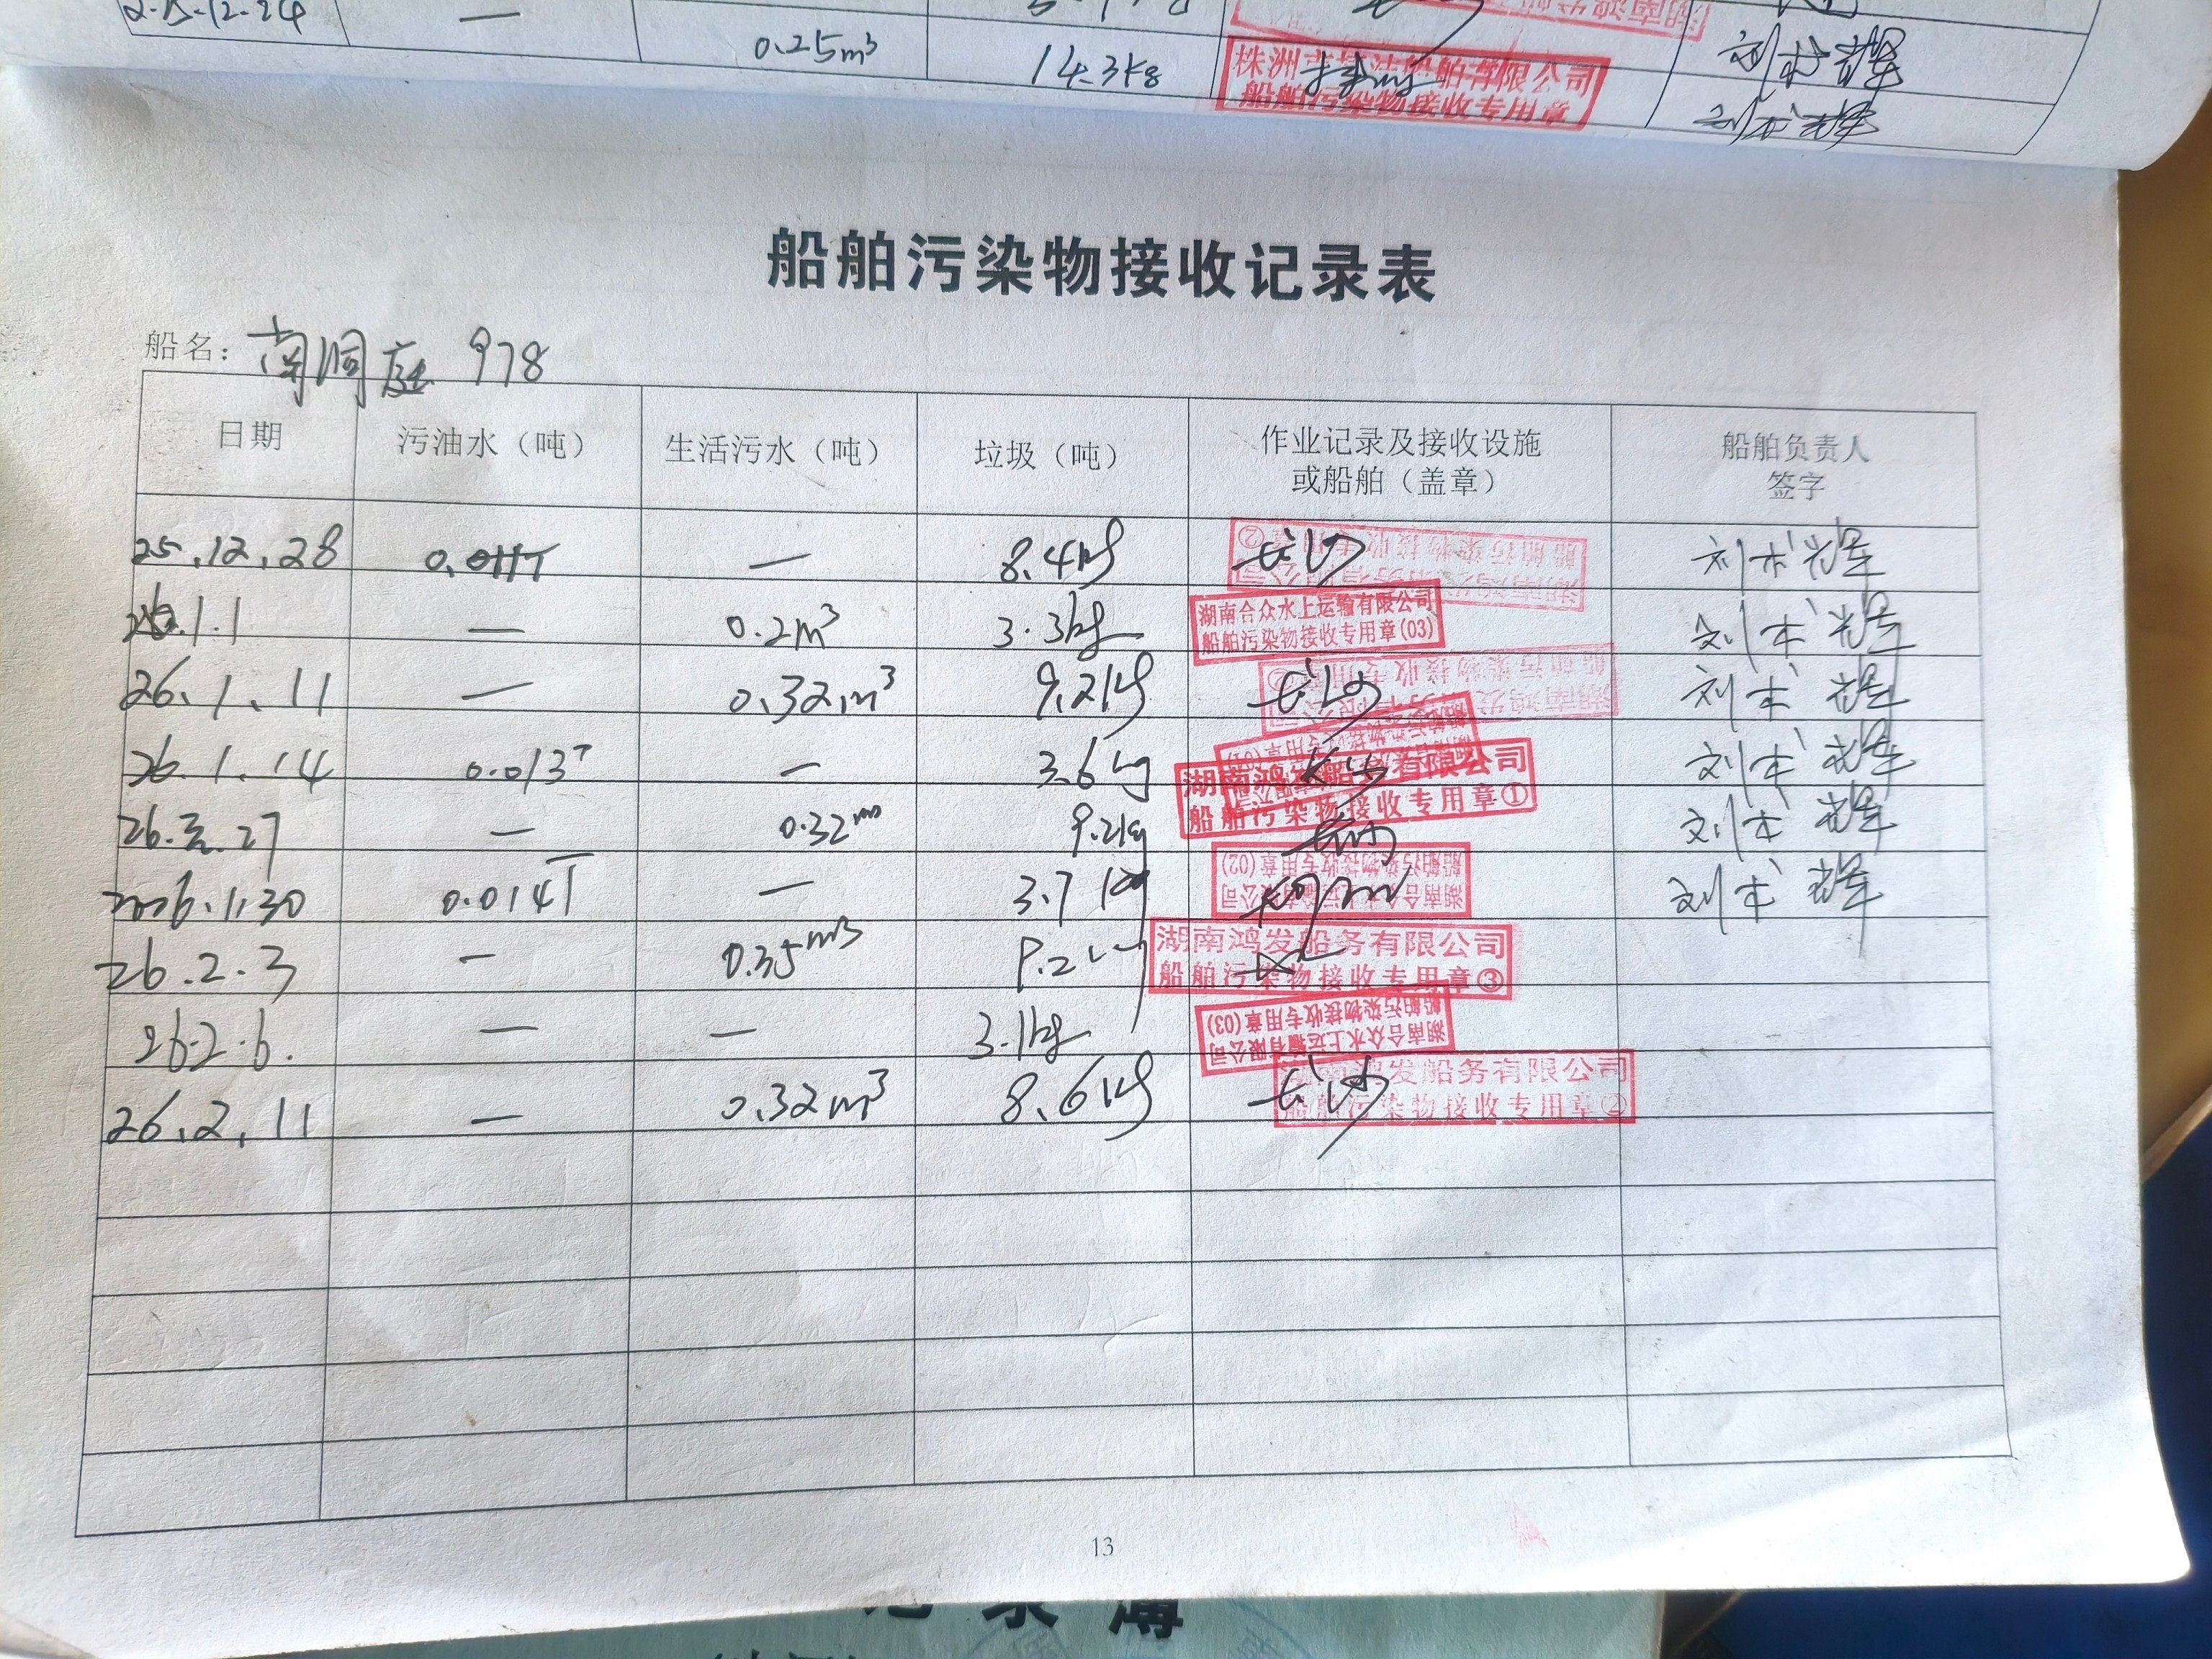 0.25m³ 14.3kg 刘本辉
船舶污染物接收专用章 刘本辉
船舶污染物接收记录表
船名: 南洞庭 978
日期 污油水（吨） 生活污水（吨） 垃圾（吨） 作业记录及接收设施或船舶（盖章） 船舶负责人签字
25.12.28 — 8.4kg 长沙 刘本辉
26.1.1 — 0.2m³ 3.3kg 湖南合众水上运输有限公司 船舶污染物接收专用章(03) 刘本辉
26.1.11 — 0.32m³ 9.2kg 长沙 刘本辉
26.1.14 0.013T — 3.6kg 长沙 刘本辉
湖南鸿发船务有限公司 船舶污染物接收专用章①
— 0.32m³ 9.2kg 刘本辉
2026.1.30 0.014T — 3.7kg 船舶污染物接收专用章(02) 刘本辉
26.2.3 — 0.35m³ 湖南鸿发船务有限公司 船舶污染物接收专用章③
26.2.6. — — 3.1kg 湖南合众水上运输有限公司 船舶污染物接收专用章(03)
26.2.11 — 0.32m³ 8.6kg 长沙 湖南鸿发船务有限公司 船舶污染物接收专用章②
13